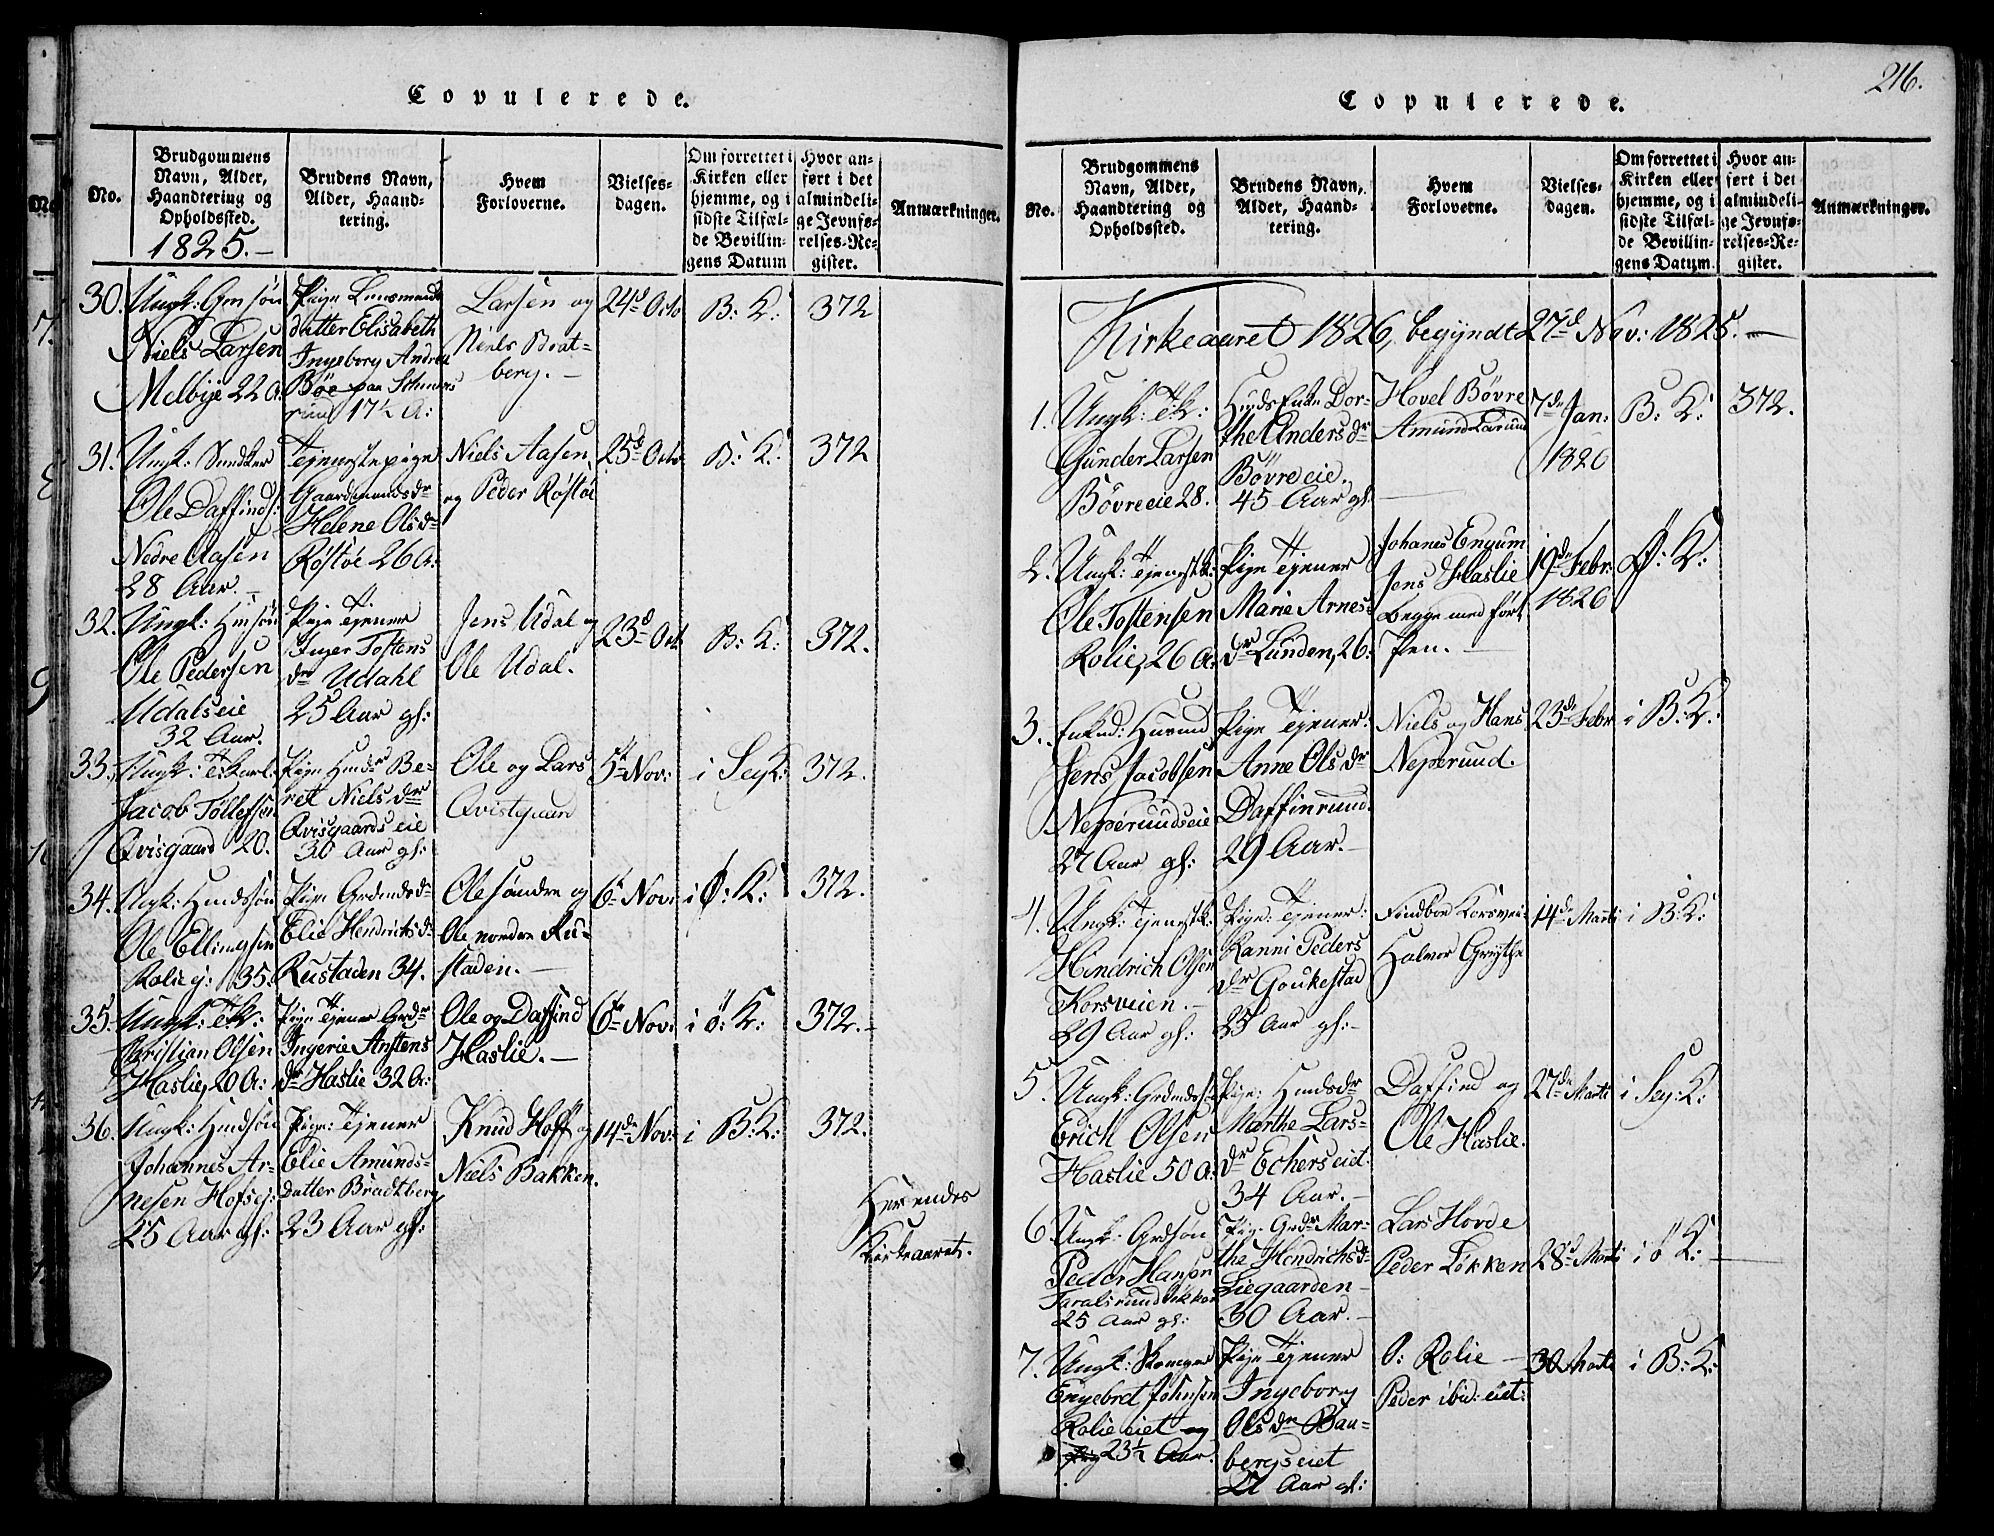 Copulerede.
No.
Brudgommens
Navn, Alder,
Haandtering og
Opholdssted.
1825.-
Brudens Navn,
Alder, Haand-
tering.
Hvem
Forloverne.
Vielses-
dagen.
Om forrettet i
Kirken eller
hjemme, og i
sidste Tilfæl-
de Bevillin-
gens Datum
Hvor an-
ført i det
almindeli-
ge Jevnfø-
relses-Re-
gister.
Anmærkninger.
30.
Ungk: Gm søn
Niels Larsen
Melbye 22 A:
Pige
datter Elisabeth
Ingeborg Andrea
Böe paa
17½ A:
Larsen og
Niels Brat-
berg.-
24d Octo
B: K:
372
31.
Ungk:
Ole Daffinds:
Nedre Aasen
28 Aar.
Tjenestepige
Gaardmandsdr
Helene Olsdr
Röstöe 26 A:
Niels Aasen
og Peder Röstöe
25d Octo
B: K:
372
32.
Ungk: Hm søn
Ole Pedersen
Udalseie
32 Aar.
Pige Tjener
Inger Tostens
dr Udahl
25 Aar gl:
Jens Udal og
Ole Udal.
23d Oct
B: K:
372.
33.
Ungk: T:karl
Jacob Tollefsen
Qvisgaard 20.
Pige Hmdsdr Be-
ret Nielsdr
Qvisgaards eie
30 Aar gl:
Ole og Lars
Qvistgaard
5te Nov:
i Sey K:
372.
34.
Ungk: Hmdssøn
Ole Ellingsen
Rolie ej: 35.
Pige Grdmdsdr
Elie Hendriksdr
Rustaden 34.
Ole søndre og
Ole nordre Ru-
staden.-
6te Nov:
i Ø: K:
372.
35.
Ungk: T:K:
Christian Olsen
Haslie, 20 A:
Pige Tjener Grdr
Ingerie Anstens
dr Haslie 32 A:
Ole og Daffind
Haslie.-
6te Nov:
i ö: K:
372.-
36.
Ungk: Hmdsøn
Johannes Ar-
nesen Hofsej:
25 Aar gl:
Pige: Tjener
Elie Amunds-
datter Bradtberg
23 Aar gl:
Knud Hoff og
Niels Bakken.
14de Nov:
i B: K:
372.
Her endes
Kirkeaaret.
216.
Copulerede.
No.
Brudgommens
Navn, Alder,
Haandtering og
Opholdssted.
Brudens Navn,
Alder, Haand-
tering.
Hvem
Forloverne.
Vielses-
dagen.
Om forrettet i
Kirken eller
hjemme, og i
sidste Tilfæl-
de Bevillin-
gens Datum.
Hvor an-
ført i det
almindeli-
ge Jevnfø-
relses-Re-
gister.
Anmærkninger.
Kirkeaaret 1826, begyndt 27d Nov: 1825.-
1.
Ungk: T:K:
Gunder Larsen
Bövreeie 28.
Hmds Enke Dor-
the Andersdr
Bövreeie,
45 Aar gl.
Hovel Bövre
Amund Larud
7de Jan:
1826
B: K:
372.
2.
Ungk: Tjenestk:
Ole Tostensen
Rolie, 26 A:
Pige Tjener
Marie Arnes-
dr Lunden, 26:
Johanes Engum
Jens Haslie
begge med ført
Pen.-
19de Febr:
1826
Ø: K:
3.
Enkmd: Husmd
Jens Jacobsen
Neperuudseie
27 Aar gl:
Pige Tjener:
Anne Olsdr
Daffinruud.
29 Aar.-
Niels og Hans
Neperuud.
23de Febr
i B: K:
4.
Ungk: Tjenestk:
Hendrich Olsen
Korsveien.-
29 Aar gl:
Pige: Tjener:
Ranni Peders
dr Goukestad
25 Aar gl:-
Findboe Korsvei
Halvor Grythe
14de Marti
i B: K:
5.
Ungk: Grdmdss:
Erich Olsen
Haslie 50 A:
Pige: Hmdsdr
Marthe Lars-
dr Echerseiet.
34 Aar.-
Daffind og
Ole Haslie.
27de Marti
i Sey: K:
6.
Ungk: Grdsøn
Peder Hansen
Taralsruud Løkken
25 Aar gl:
Pig: Grdr Mar-
the Hendrichsdr
Liegaarden-
30 Aar.-
Lars Hovde
Peder Løkken
28d Marti
i ö K:
7.
Ungk:
Engebret Johnsen
Rolie eiet
23½ Aar.
Pige Tjener
Ingeborg
Olsdr Bau-
bergseiet
27 Aar gl:
O: Rolie-
Peder ibid: eiet:
30 Marti
i B: K: